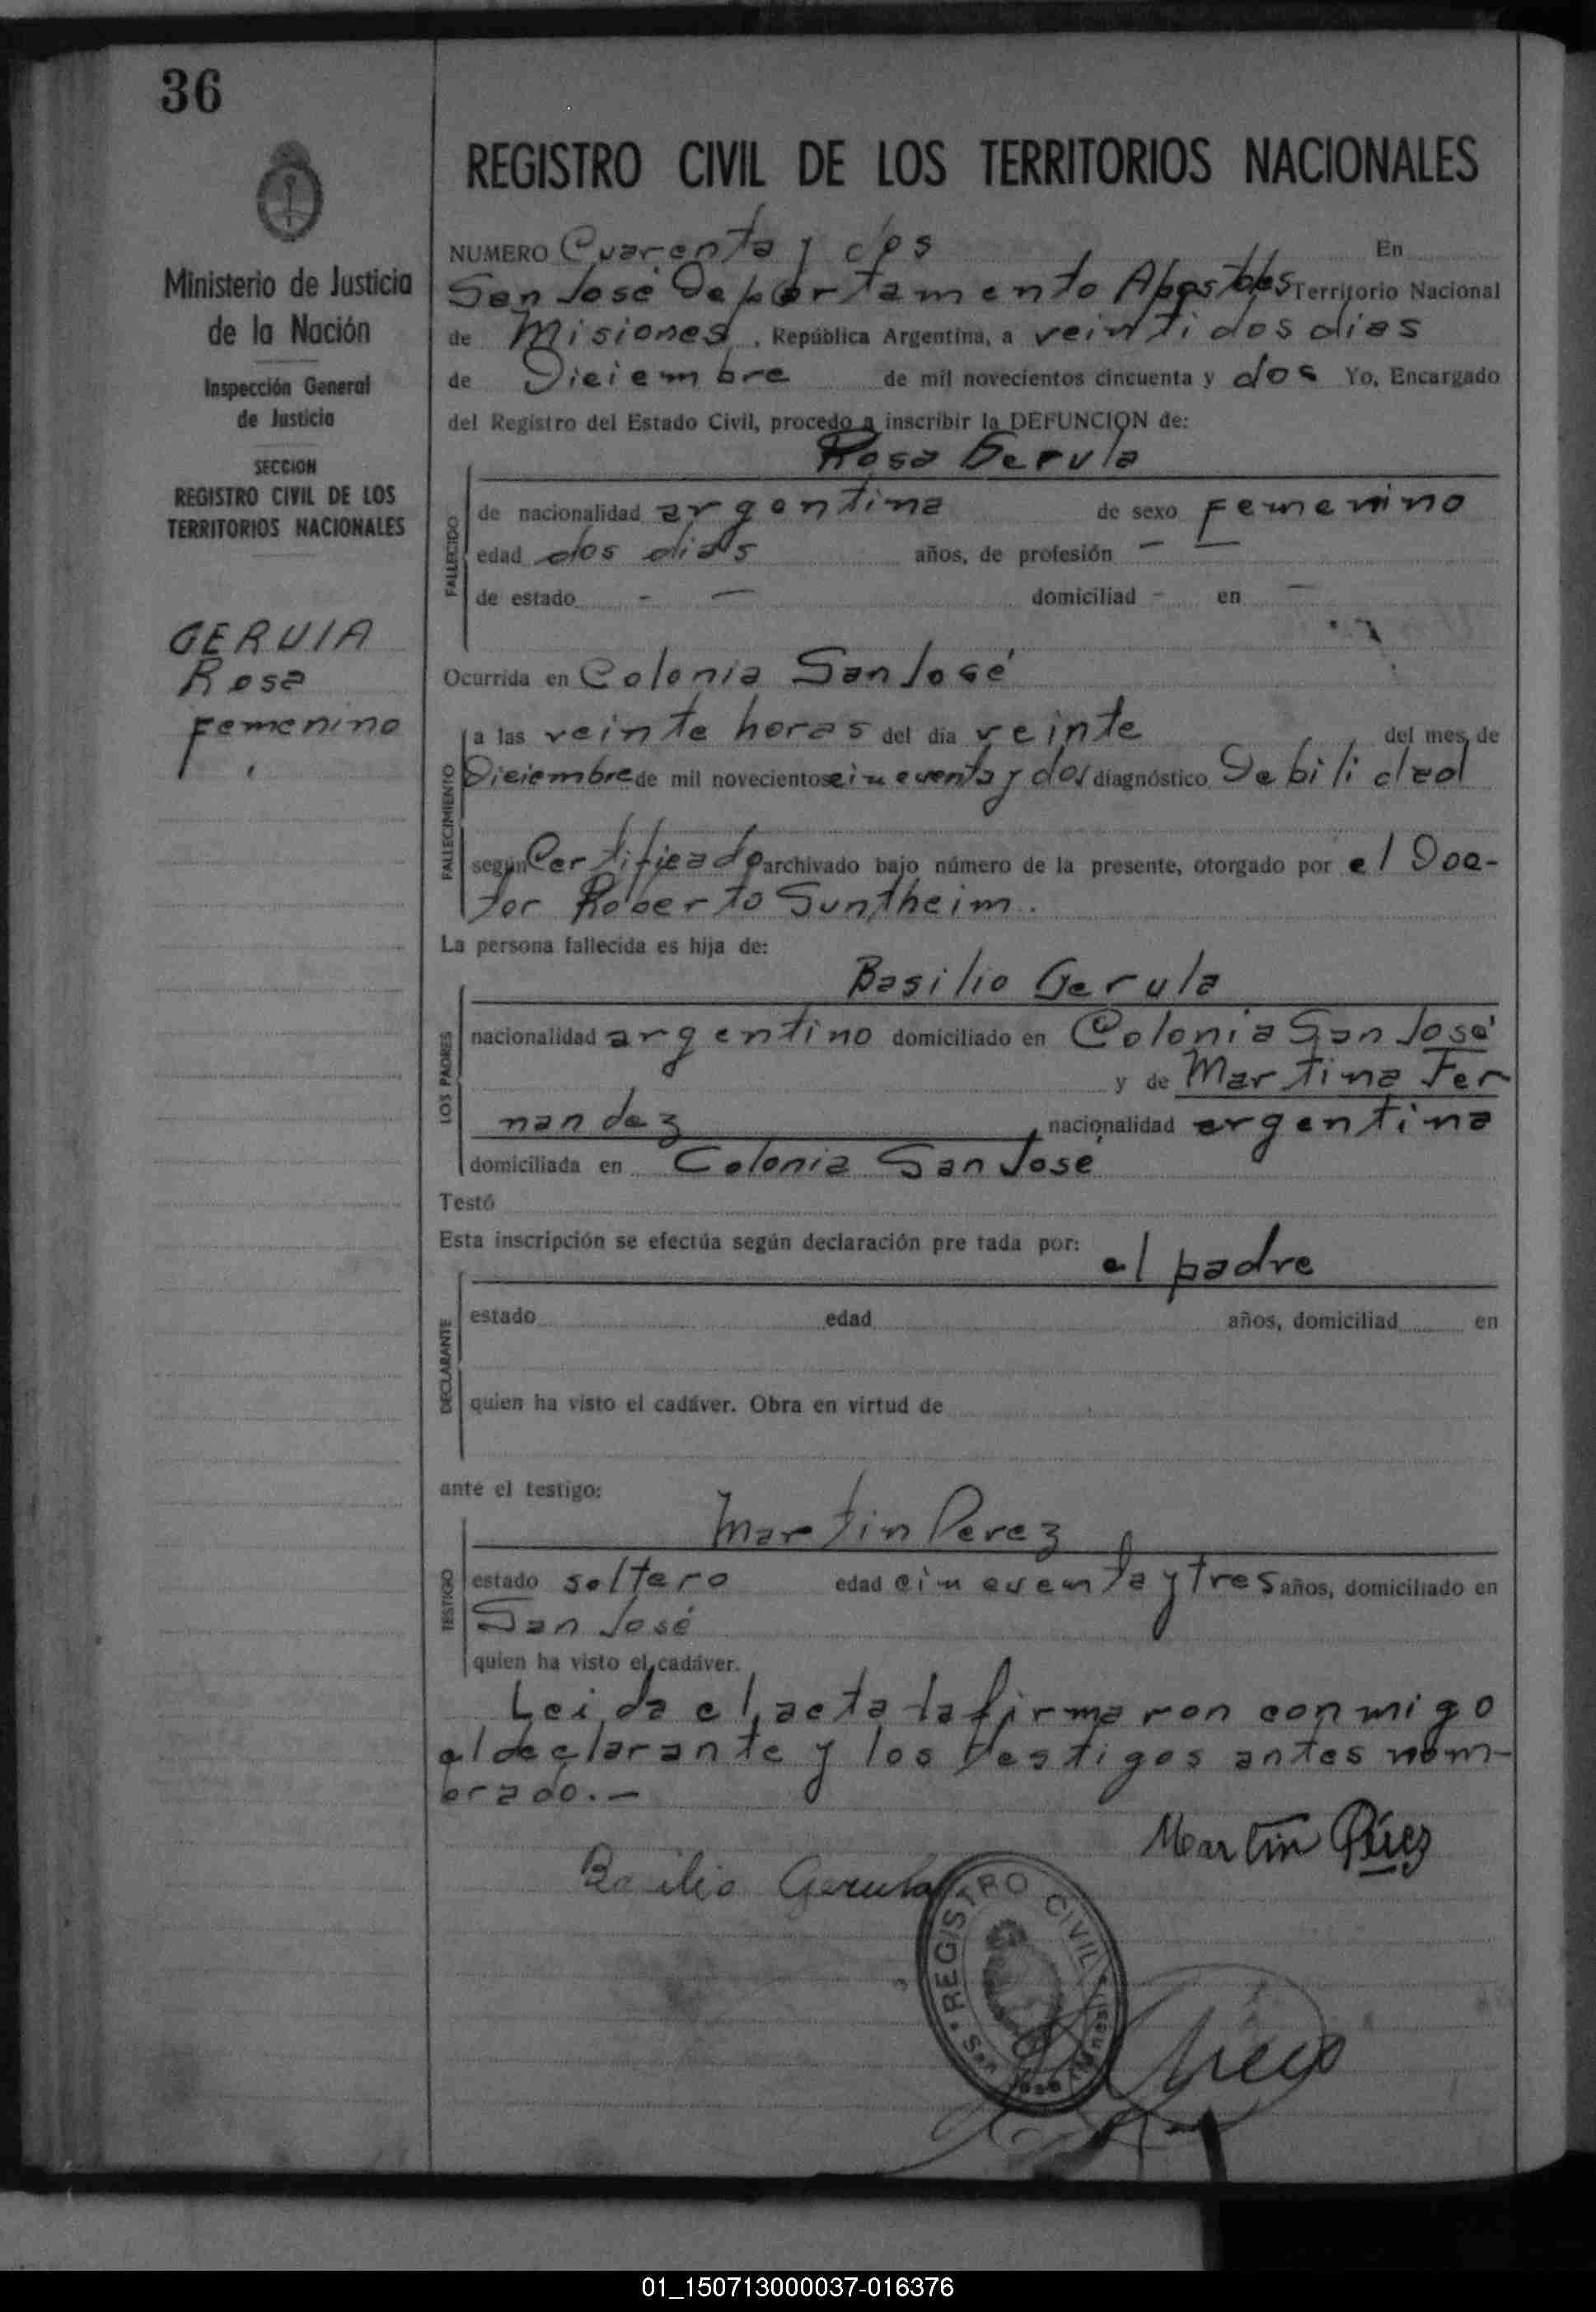 36
Ministerio de Justicia
de la Nación
Inspección General
de Justicia
SECCION
REGISTRO CIVIL DE LOS
TERRITORIOS NACIONALES
GERULA
Rosa
Femenino
REGISTRO CIVIL DE LOS TERRITORIOS NACIONALES
NUMERO Cuarenta y dos En
San José Departamento Apostoles Territorio Nacional
de Misiones, República Argentina, a veintidos dias
de Diciembre de mil novecientos cincuenta y dos Yo, Encargado
del Registro del Estado Civil, procedo a inscribir la DEFUNCION de:
Rosa Gerula
FALLECIDO
de nacionalidad argentina de sexo Femenino
edad dos dias años, de profesión - —
de estado - — domiciliad - en —
Ocurrida en Colonia San José
FALLECIMIENTO
a las veinte horas del día veinte del mes de
Diciembre de mil novecientos cincuenta y dos diagnóstico Debilidad
según Certificado archivado bajo número de la presente, otorgado por el Doc-
tor Roberto Suntheim.
La persona fallecida es hija de:
Basilio Gerula
LOS PADRES
nacionalidad argentino domiciliado en Colonia San José
y de Martina Fer
nandez nacionalidad argentina
domiciliada en Colonia San José
Testó
Esta inscripción se efectúa según declaración pre tada por:
el padre
DECLARANTE
estado edad años, domiciliad en
quien ha visto el cadáver. Obra en virtud de
ante el testigo:
Martin Perez
TESTIGO
estado soltero edad cincuenta y tres años, domiciliado en
San José
quien ha visto el cadáver.
Leida el acta la firmaron conmigo
el declarante y los testigos antes nom-
brado.-
Martin Pérez
Basilio Gerula
REGISTRO CIVIL
San José (Misiones)
01_150713000037-016376